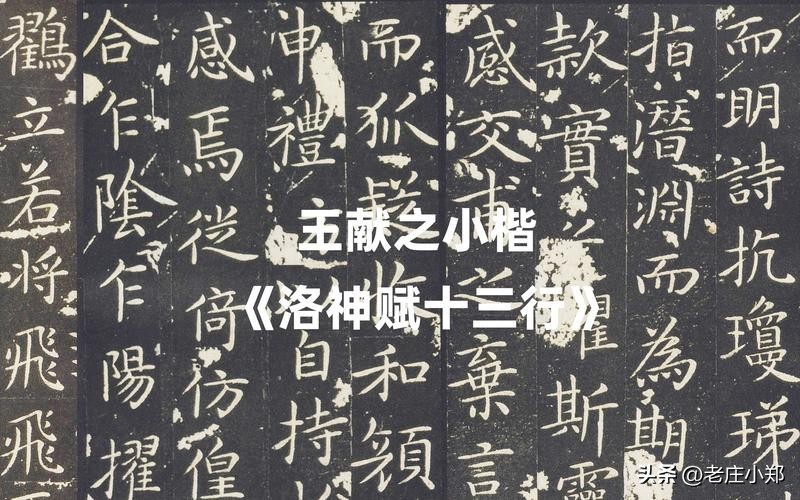 而明詩抗瓊珶
指潛淵而為期
款實兮懼斯靈
感交甫之棄言
而狐疑收和顔
申禮自持
感焉徙倚仿徨
合乍陰乍陽擢
立若将飛飛
王献之小楷
《洛神赋十三行》
头条 @老庄小郑